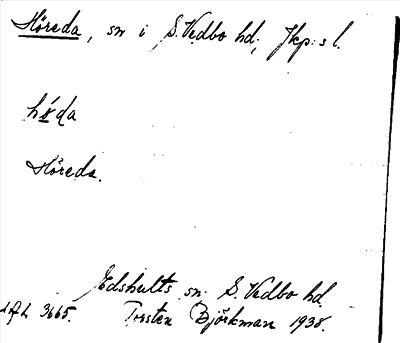 Höreda, sn i S. Vedbo hd, Jkp:s l.
hö́ɖa
Höreda.
Edshults sn. S. Vedbo hd.
LAL 3665. Torsten Björkman 1938.